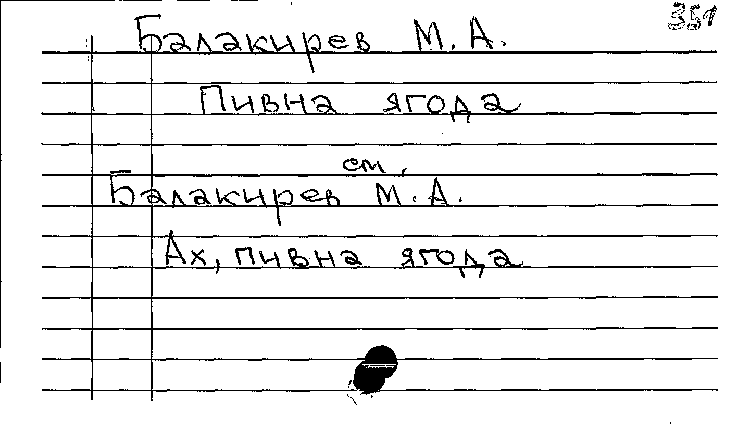 351
Балакирев М. А.
Пивна ягода
см.
Балакирев М. А.
Ах, пивна ягода